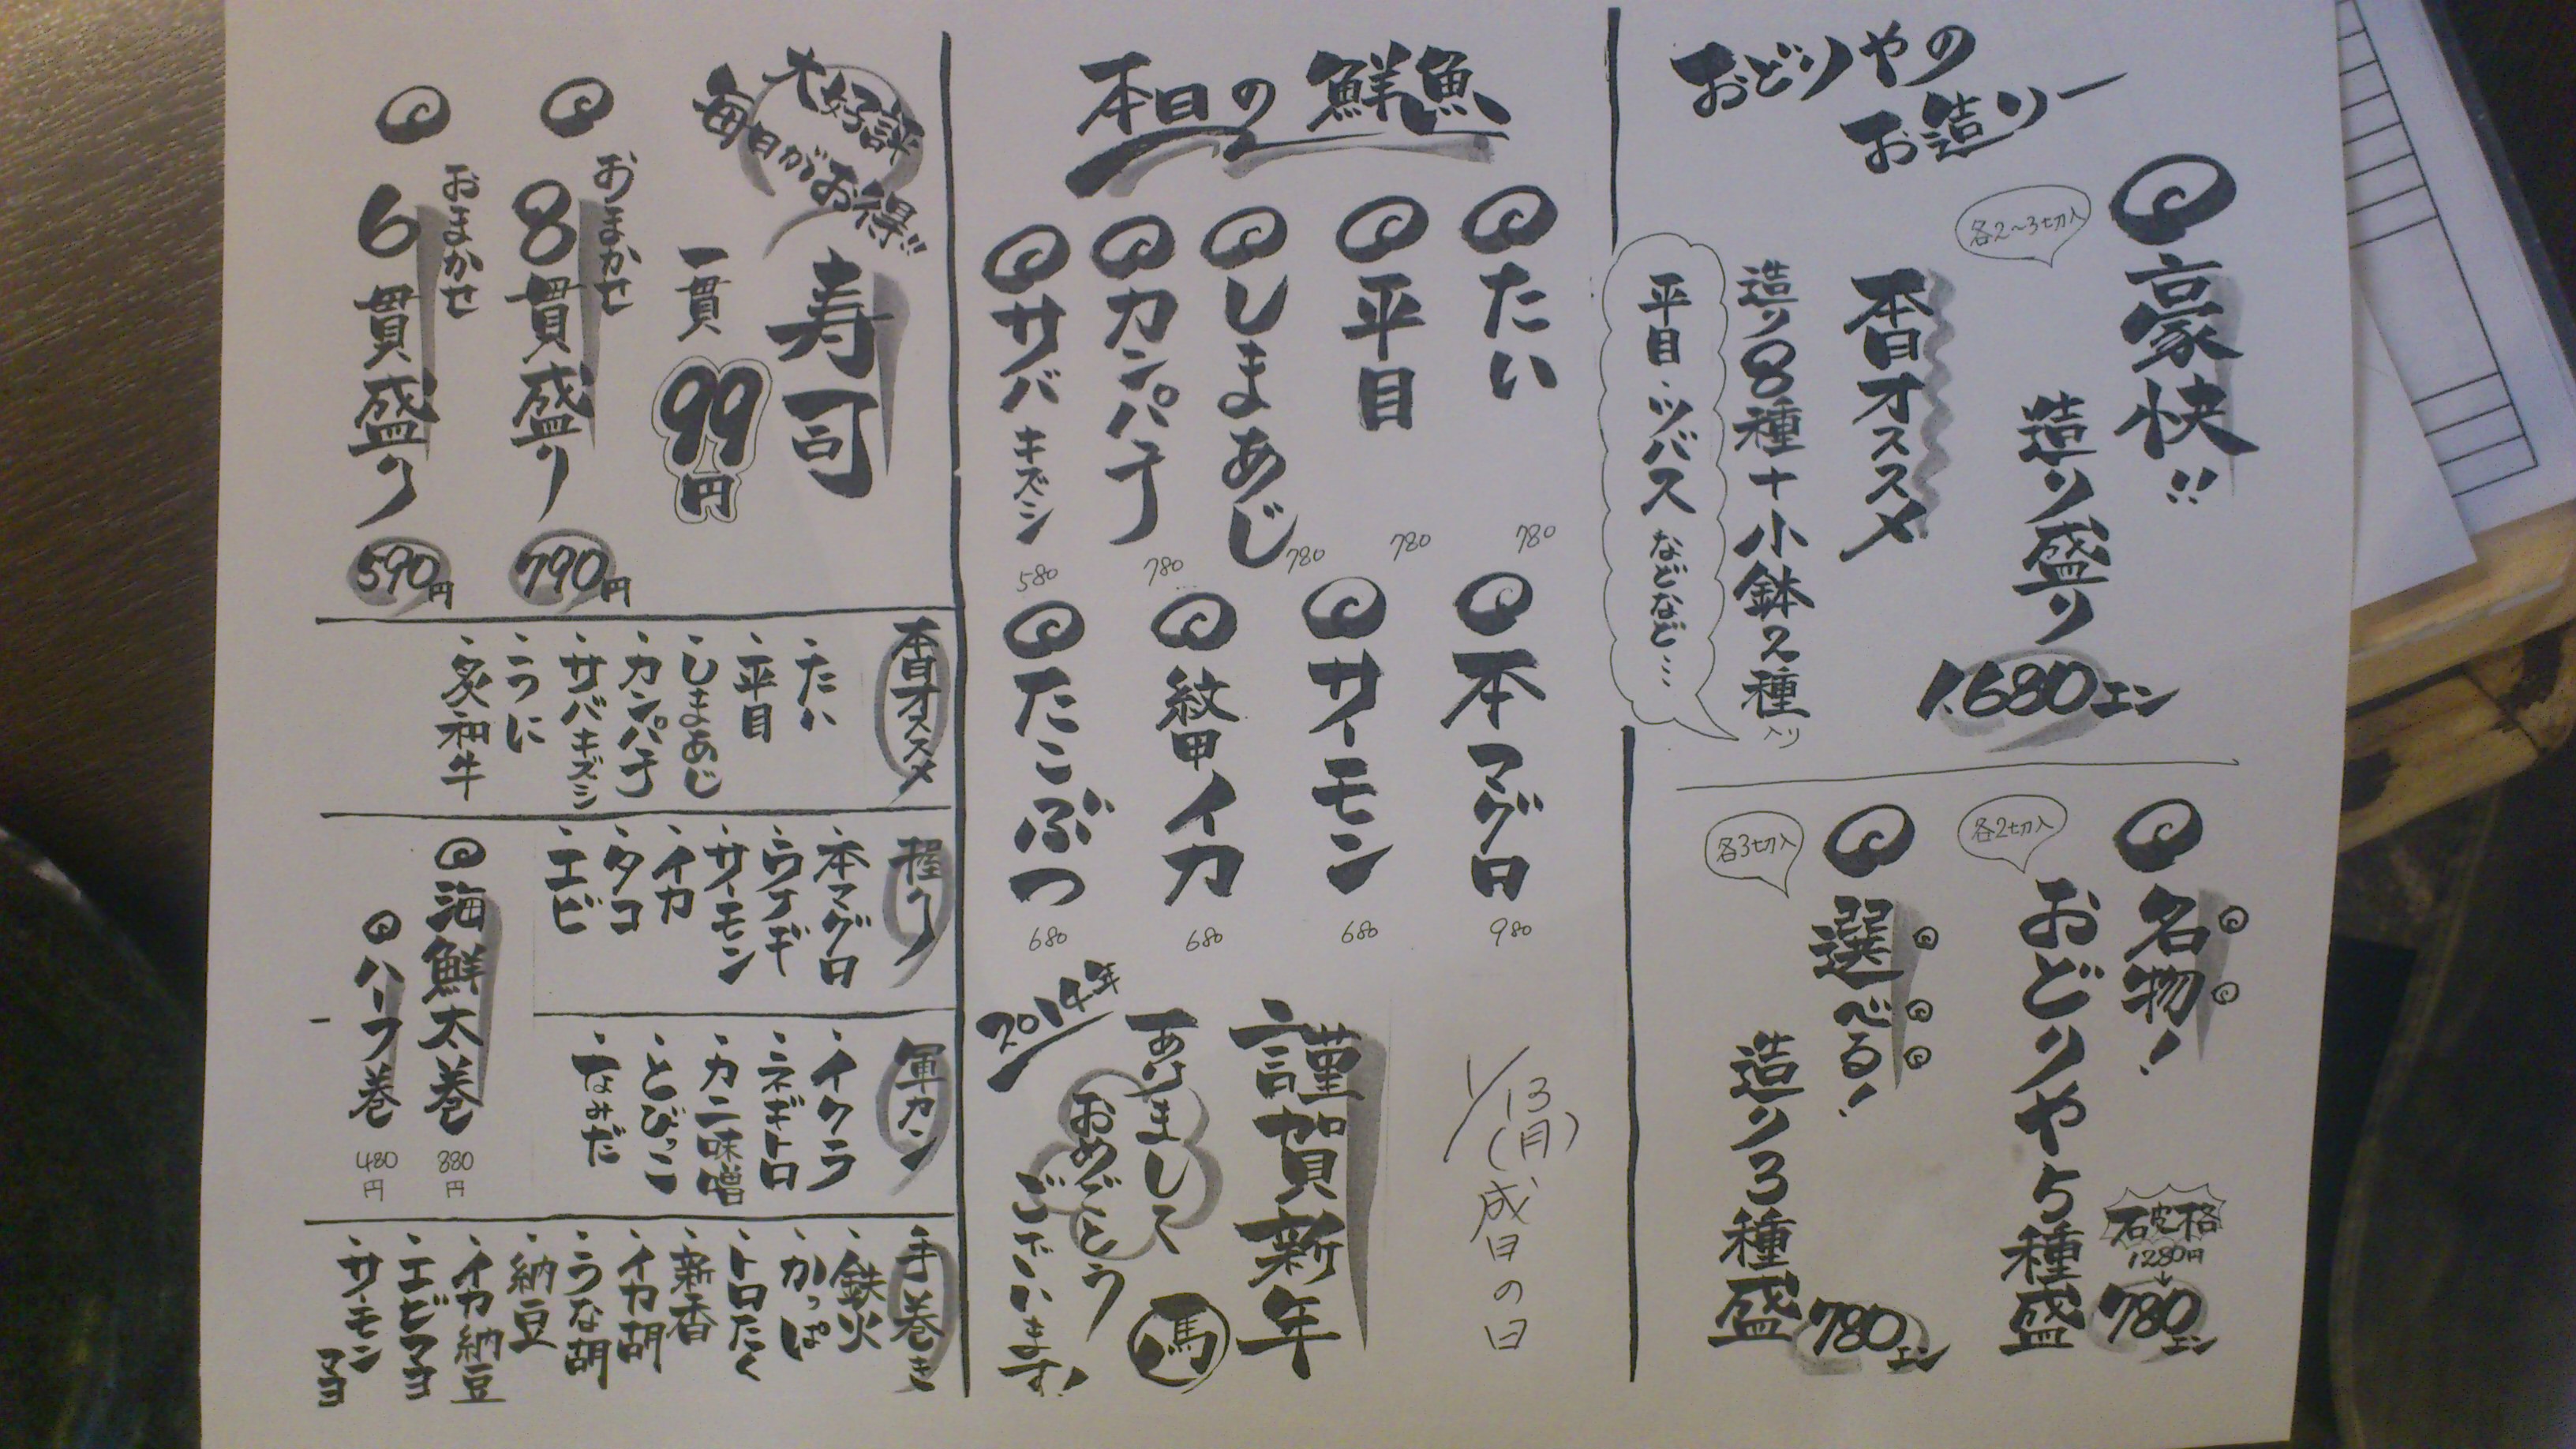 おどりやの
お造りー
豪快!!
造り盛り
1,680エン
各2〜3切入
本日オススメ
造り8種+小鉢2種入り
平目・ツバス などなど…
名物!
おどりや5種盛
各2切入
破格
1280円
↓
780エン
選べる!
造り3種盛
各3切入
780エン
本日の鮮魚
たい
780
平目
780
しまあじ
780
カンパチ
780
サバキズシ
580
本マグロ
980
サーモン
680
紋甲イカ
680
たこぶつ
680
1/13(月)成日の日
謹賀新年
馬
あけまして
おめでとう
ございます!
2014年
大好評
毎日がお得!!
寿司
一貫
99円
おまかせ
8貫盛り
790円
おまかせ
6貫盛り
590円
本日オススメ
・たい
・平目
・しまあじ
・カンパチ
・サバキズシ
・うに
・炙和牛
握り
・本マグロ
・ウナギ
・サーモン
・イカ
・タコ
・エビ
海鮮太巻
880円
ハーフ巻
480円
軍カン
・イクラ
・ネギトロ
・カニ味噌
・とびっこ
・なみだ
手巻き
・鉄火
・かっぱ
・トロたく
・新香
・イカ胡
・うな胡
・納豆
・イカ納豆
・エビマヨ
・サーモンマヨ